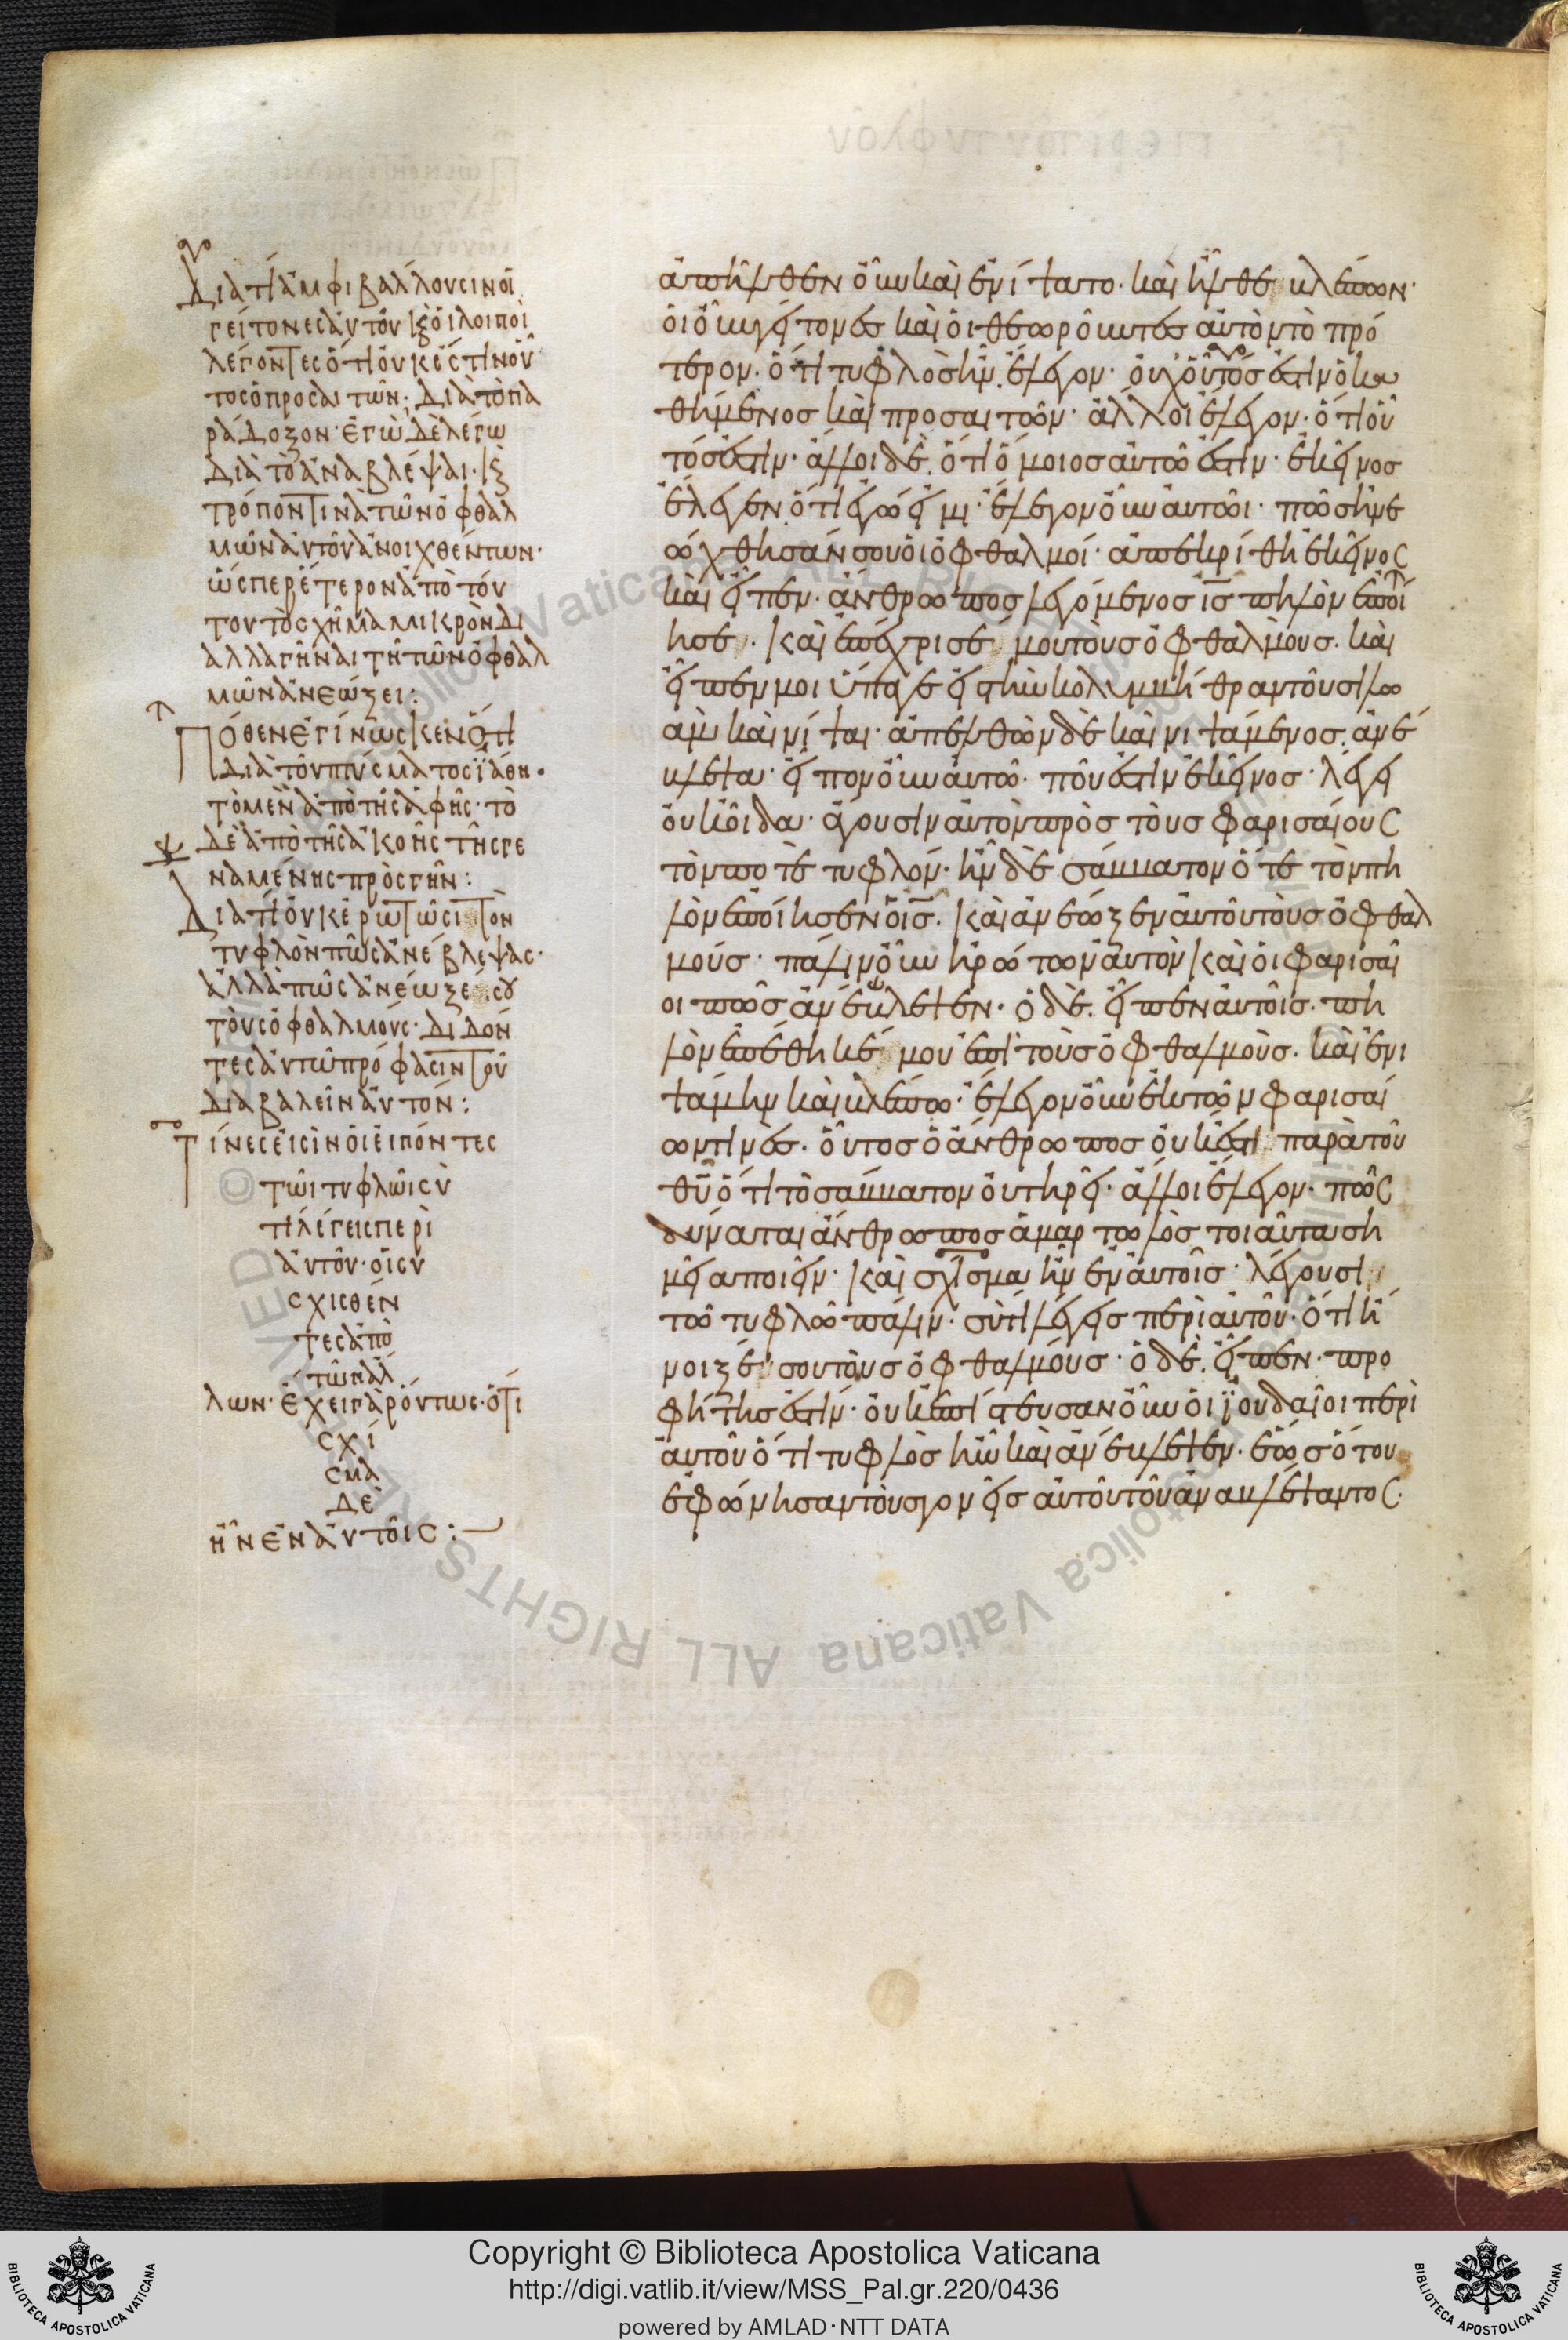 Διατί ἀμφιβάλλουσιν οἱ
γείτονες αὐτοῦ κὲ οἱ λοιποὶ
λέγοντες ὅτι οὐκ ἔστιν οὗ
τος ὁ προσαιτῶν· διὰ τὸ πα
ράδοξον· ἐγὼ δὲ λέγω
διὰ τὸ ἀναβλέψαι· κὲ
τρόπον τινὰ τῶν ὀφθαλ
μῶν αὐτοῦ ἀνοιχθέντων·
ὥσπερ ἕτερον ἀπὸ τού
του τὸ σχῆμα μικρὸν δι
αλλαγῆναι τῆ τῶν ὀφθαλ
μῶν ἀνεώξει:
Πόθεν ἐγίνωσκεν ὅτι
διὰ τοῦ πτύσματος ϊάθη·
τὸ μὲν ἀπὸ τῆς ἁφῆς· τὸ
δὲ ἀπὸ τῆς ἀκοῆς τῆς γε
ναμένης πρὸς γῆν:
Διατί οὐκ ἐρωτῶσι τὸν
τυφλὸν πῶς ἀνέβλεψας·
ἀλλὰ πῶς ἀνέωξέ σου
τοὺς ὀφθαλμούς· διδόν
τες αὐτῶ πρόφασιν τοῦ
διαβαλεῖν αὐτόν:
Τίνες εἰσὶν οἱ εἰπόντες
τῶι τυφλῶι σὺ
τί λέγεις περὶ
αὐτοῦ· οἱ συ
σχισθέν
τες ἀπὸ
τῶν ἄλ
λων· ἔχει γὰρ οὕτως· ὅτι
σχί
σμα
δὲ
ἦν ἐν αὐτοῖς:
ἀπῆλθεν οὖν καὶ ἐνίψατο· καὶ ἦλθε βλέπων·
οἱ οὖν γείτονες καὶ οἱ θεωροῦντες αὐτὸν τὸ πρό
τερον· ὅτι τυφλὸς ἦν. ἔλεγον· οὐχ οὗτός ἐστιν ὁ κα
θήμενος καὶ προσαιτῶν· ἄλλοι ἔλεγον· ὅτι οὗ
τός ἐστιν· ἄλλοι δὲ. ὅτι ὅμοιος αὐτῶ ἐστιν· ἐκεῖνος
ἔλεγεν ὅτι ἐγώ εἰμι· ἔλεγον οὖν αὐτῶι· πῶς ἠνε
ώχθησάν σου οἱ ὀφθαλμοί· ἀπεκρίθη ἐκεῖνος
καὶ εἶπεν· ἄνθρωπος λεγόμενος ις πηλὸν ἐποί
ησε· καὶ ἐπέχρισέ μου τοὺς ὀφθαλμοὺς. καὶ
εἶπεν μοι ὕπαγε εἰς τὴν κολυμβήθραν τοῦ σιλω
ὰμ καὶ νίψαι· ἀπελθὼν δὲ καὶ νιψάμενος. ἀνέ
βλεψα· εἶπον οὖν αὐτῶ· ποῦ ἐστιν ἐκεῖνος· λέγει
οὐκ οἶδα· ἄγουσιν αὐτὸν πρὸς τοὺς φαρισαίους
τὸν ποτὲ τυφλόν· ἦν δὲ σάββατον ὅτε τὸν πη
λὸν ἐποίησεν ὁ ις. καὶ ἀνέωξεν αὐτοῦ τοὺς ὀφθαλ
μούς· πάλιν οὖν ἠρώτων αὐτὸν καὶ οἱ φαρισαῖ
οι πῶς ἀνέβλεψεν· ὁ δὲ. εἶπεν αὐτοῖς. πη
λὸν ἐπέθηκέ μου ἐπὶ τοὺς ὀφθαλμοὺς. καὶ ἐνι
ψάμην καὶ βλέπω· ἔλεγον οὖν ἐκ τῶν φαρισαί
ων τινὲς. οὗτος ὁ ἄνθρωπος οὐκ ἔστι παρὰ τοῦ
θῦ ὅτι τὸ σάββατον οὐ τηρεῖ· ἄλλοι ἔλεγον. πῶς
δύναται ἄνθρωπος ἁμαρτωλὸς τοιαῦτα ση
μεῖα ποιεῖν· καὶ σχίσμα ἦν ἐν αὐτοῖς· λέγουσι
τῶ τυφλῶ πάλιν· σὺ τί λέγεις περὶ αὐτοῦ· ὅτι ἤ
νοιξέ σου τοὺς ὀφθαλμούς· ὁ δὲ. εἶπεν· προ
φήτης ἐστίν· οὐκ ἐπίστευσαν οὖν οἱ ϊουδαῖοι περὶ
αὐτοῦ ὅτι τυφλὸς ἦν καὶ ἀνέβλεψεν. ἕως ὅτου
ἐφώνησαν τοὺς γονεῖς αὐτοῦ τοῦ ἀναβλέψαντος·
Copyright © Biblioteca Apostolica Vaticana
http://digi.vatlib.it/view/MSS_Pal.gr.220/0436
powered by AMLAD·NTT DATA
BIBLIOTECA APOSTOLICA VATICANA
BIBLIOTECA APOSTOLICA VATICANA